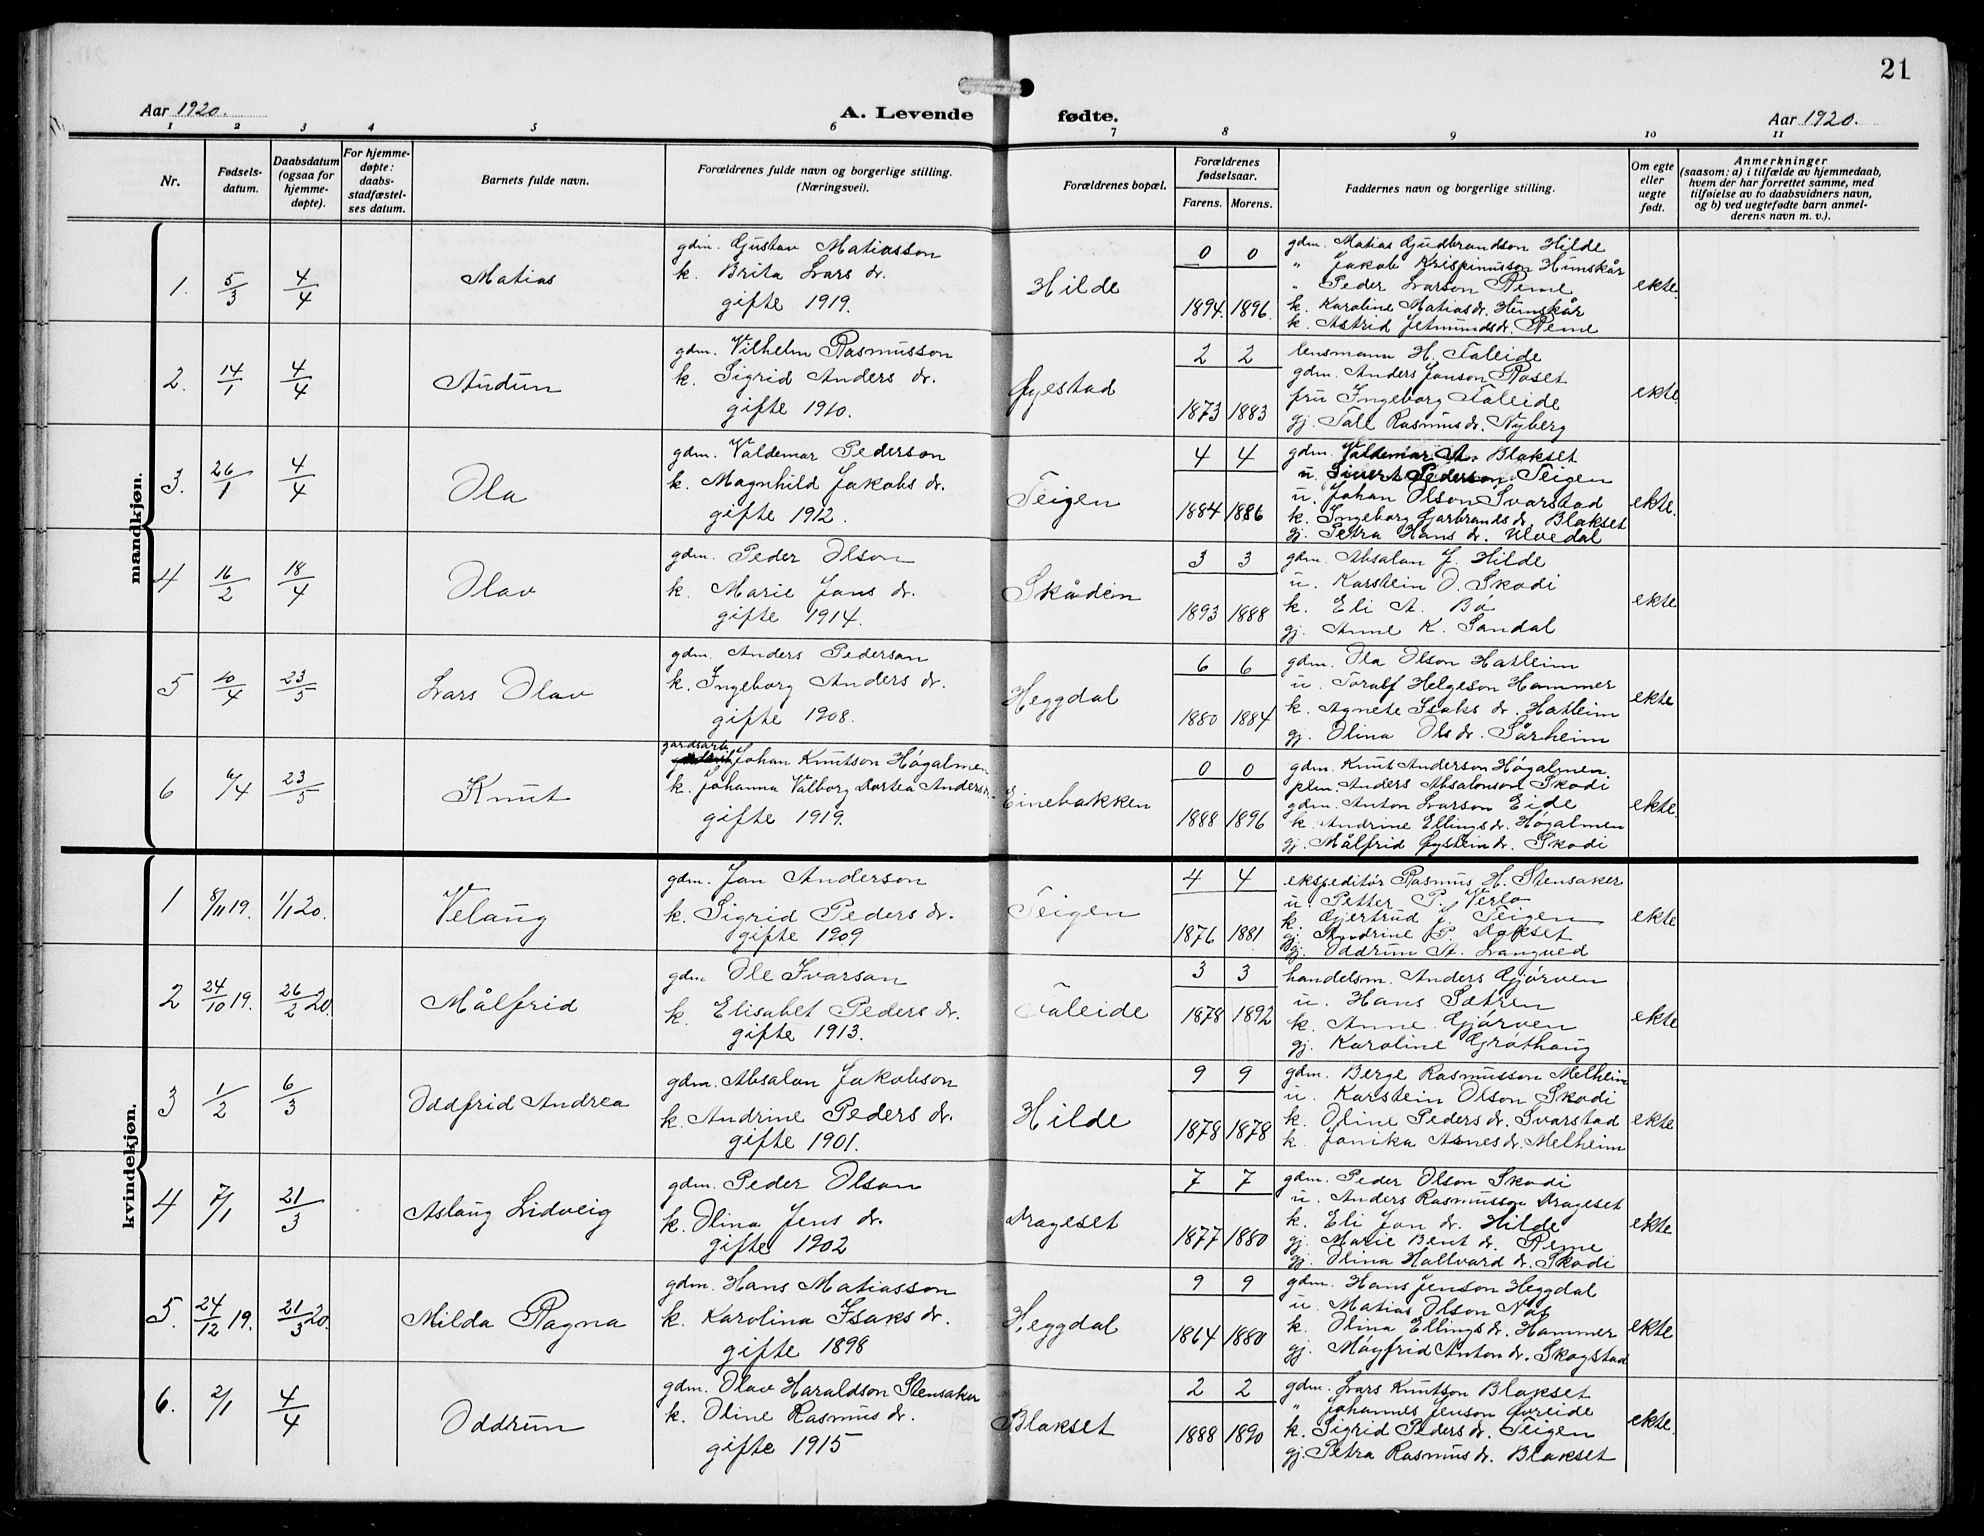 21
Aar 1920.
A. Levende fødte.
Aar 1920.
1 2 3 4 5 6 7 8 9 10 11
Nr.
Fødsels-
datum.
Daabsdatum
(ogsaa for
hjemme-
døpte).
For hjemme-
døpte:
daabs-
stadfæstel-
ses datum.
Barnets fulde navn.
Forældrenes fulde navn og borgerlige stilling.
(Næringsvei).
Forældrenes bopæl.
Forældrenes
fødselsaar.
Farens. Morens.
Faddernes navn og borgerlige stilling.
Om egte
eller
uegte
født.
Anmerkninger
(saasom: a) i tilfælde av hjemmedaab,
hvem der har forrettet samme, med
tilføielse av to daabsvidners navn,
og b) ved uegtefødte barn anmel-
derens navn m. v.).
mandkjøn.
1. 5/3 4/4 Matias
gdm. Gustav Matiasson
k. Brita Lars dr.
gifte 1919.
Hilde
0 0
1894. 1896.
gdm. Matias Gudbrandson Hilde
" Jakob Krispinusson Hunskår
" Peder Larson Reme
k. Karoline Matiasdr. Hunskår
k. Astrid Jetmundsdr. Reme
ekte.
2. 14/1 4/4 Audun
gdm. Vilhelm Rasmusson
k. Sigrid Anders dr.
gifte 1910.
Øyestad
2 2
1873 1883
lensmann H. Faleide
gdm. Anders Janson Roset
fru Ingeborg Faleide
gj. Tall Rasmus dr. Nyberg
ekte.
3. 26/1 4/4 Ola
gdm. Valdemar Pederson
k. Magnhild Jakobs dr.
gifte 1912.
Teigen
4 4
1884 1886
gdm. Valdemar A. Blakset
u. Sivert Pederson Teigen
u. Johan Olson Svarstad
k. Ingeborg Gjarbrands dr. Blakset
gj. Petra Hans dr. Ulvedal
ekte.
4 16/2 18/4 Olav
gdm. Peder Olson
k. Marie Jans dr.
gifte 1914.
Skådein
3 3
1893 1888
gdm. Absalon J. Hilde
u. Karstein O. Skodi
k. Eli A. Bø
gj. Anne K. Sandal
ekte
5 10/4 23/5 Lars Olav
gdm. Anders Pederson
k. Ingeborg Anders dr.
gifte 1908.
Heggdal
6 6
1880 1884
gdm. Ola Olson Hatleim
u. Toralf Helgeson Hammer
k. Agnete Isaks dr. Hatleim
gj. Olina Ols dr. Sårheim
ekte
6 6/4 23/5 Knut
gardsarb. Johan Knutson Høgalmen
k. Johanna Valborg Dortea Anders dr.
gifte 1919.
Einebakken
0 0
1888 1896
gdm. Knut Anderson Høgalmen.
plm. Anders Absalonson Skodi
gdm. Anton Larson Eide
k. Andrine Ellings dr. Høgalmen
gj. Målfrid Øystein dr. Skodi
ekte.
kvindekjøn.
1 8/11 19. 1/1 20. Velaug
gdm. Jan Anderson
k. Sigrid Peders dr.
gifte 1909
Teigen
4 4
1876 1881
ekspeditør Rasmus H. Stensaker
u. Petter P. Verlo
k. Gjertrud J. Teigen
gj. Andrine P.
gj. Oddrun A. Langved
ekte
2 24/10 19. 26/2 20. Målfrid
gdm. Ole Ivarson
k. Elisabet Peders dr.
gifte 1913.
Faleide
3 3
1878 1892
handelsm. Anders Gjørven
u. Hans Sætren
k. Anne Gjørven
gj. Karoline Grøthaug
ekte
3 1/2 6/3 Oddfrid Andrea
gdm. Absalon Jakobson
k. Andrine Peders dr.
gifte 1901.
Hilde
9 9
1878 1878
gdm. Berge Rasmusson Melheim
u. Karstein Olson Skodi
k. Oline Peders dr. Svarstad
k. Janika Asnes dr. Melheim
ekte
4 7/1 21/3 Aslaug Lidveig
gdm. Peder Olson
k. Olina Jens dr.
gifte 1902
Drageset
7 7
1877 1880
gdm. Peder Olson Skodi
u. Anders Rasmusson Drageset
k. Eli Jan dr. Hilde
gj. Marie Bent dr. Reme
gj. Olina Hallvard dr. Skodi
ekte
5. 24/12 19. 21/3 20. Milda Ragna
gdm. Hans Matiasson
k. Karolina Isaks dr.
gifte 1898
Heggdal
9 9
1864 1880
gdm. Hans Jenson Heggdal
u. Matias Olson Nos
k. Olina Ellings dr. Hammer
gj. Møyfrid Anton dr. Skogstad
ekte
6. 2/1 4/4 Oddrun
gdm. Olav Haraldson Stensaker
k. Oline Rasmus dr.
gifte 1915
Blakset
2 2
1888 1890
gdm. Lars Knutson Blakset
" Johannes Jenson Øvreide
k. Sigrid Peders dr. Teigen
gj. Petra Rasmus dr. Blakset
ekte.